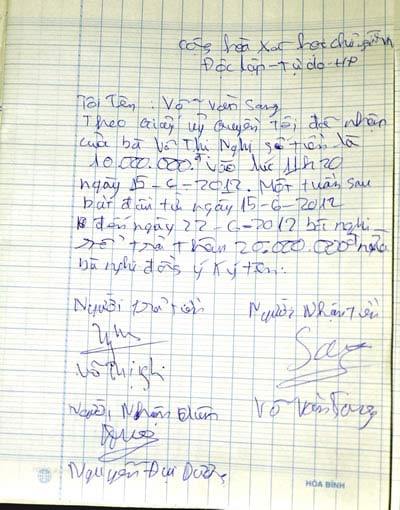 Cộng hòa Xã hội chủ nghĩa
Độc lập - Tự do - HP
Tôi Tên : Võ Văn Sang
Theo giấy uỷ quyền tôi đã nhận
của bà Võ Thị Nghi số tiền là
10.000.000đ vào lúc 11h20
ngày 15-6-2012. Một tuần sau
bắt đầu từ ngày 15-6-2012
đến ngày 22-6-2012 bà nghi
20.000.000đ
bà nghi đồng ý ký tên.
Người trả tiền
Người Nhận Tiền
Sang
Võ Thị Nghi
Võ Văn Sang
Người Nhận
Nguyễn Đại Dương
HÒA BÌNH